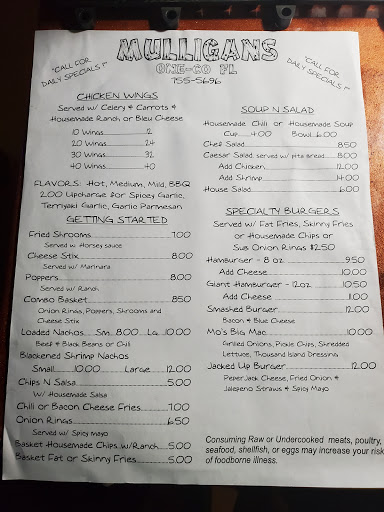 MULLIGANS
ONE-CO FL
755-5696
"CALL FOR
DAILY SPECIALS!"
"CALL FOR
DAILY SPECIALS!"
CHICKEN WINGS
Served w/ Celery & Carrots &
Housemade Ranch or Bleu Cheese
10 Wings 12
20 Wings 24
30 Wings 32
40 Wings 40
FLAVORS: Hot, Medium, Mild, BBQ
2.00 Upcharge for Spicey Garlic,
Terriyaki Garlic, Garlic Parmesan
GETTING STARTED
Fried Shrooms 7.00
Served w. Horsey sauce
Cheese Stix 8.00
Served w/ Marinara
Poppers 8.00
Served w/ Ranch
Combo Basket 8.50
Onion Rings, Poppers, Shrooms and
Cheese Stix
Loaded Nachos Sm. 8.00 La. 10.00
Beef & Black Beans or Chili
Blackened Shrimp Nachos
Small 10.00 Large 12.00
Chips N Salsa 5.00
W/ Housemade Salsa
Chili or Bacon Cheese Fries 7.00
Onion Rings 6.50
Served w/ Spicy Mayo
Basket Housemade Chips w/Ranch 5.00
Basket Fat or Skinny Fries 5.00
SOUP N SALAD
Housemade Chili or Housemade Soup
Cup 4.00 Bowl 6.00
Chef Salad 8.50
Caesar Salad served w/ Pita Bread 8.00
Add Chicken 12.00
Add Shrimp 14.00
House Salad 6.00
SPECIALTY BURGERS
Served w/ Fat Fries, Skinny Fries
or Housemade Chips or
Sub Onion Rings $2.50
Hamburger - 8 oz 9.50
Add Cheese 10.00
Giant Hamburger - 12oz 10.50
Add Cheese 11.00
Smashed Burger 12.00
Bacon & Blue Cheese
Mo's Big Mac 10.00
Grilled Onions, Pickle Chips, Shredded
Lettuce, Thousand Island Dressing
Jacked Up Burger 12.00
PeperJack Cheese, Fried Onion &
Jalepeno Straws & Spicy Mayo
Consuming Raw or Undercooked meats, poultry,
seafood, shellfish, or eggs may increase your risk
of foodborne illness.